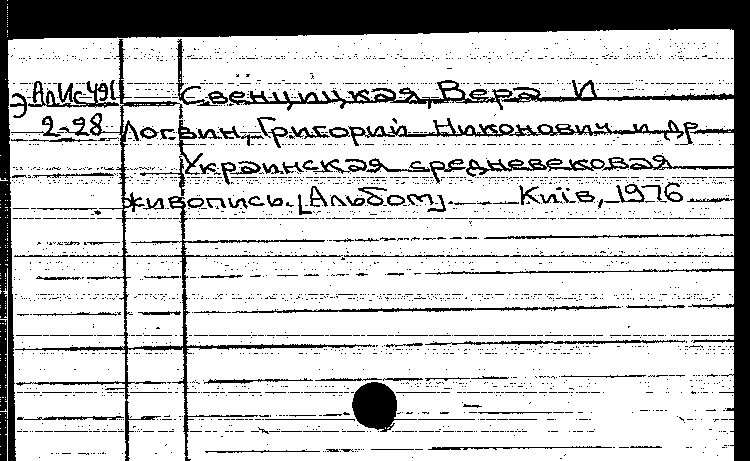 Э АлИс491 Свенцицкая, Вера И
2-28 Логвин, Григорий Никонович и др
Украинская средневековая
живопись. [Альбом]. Київ, 1976